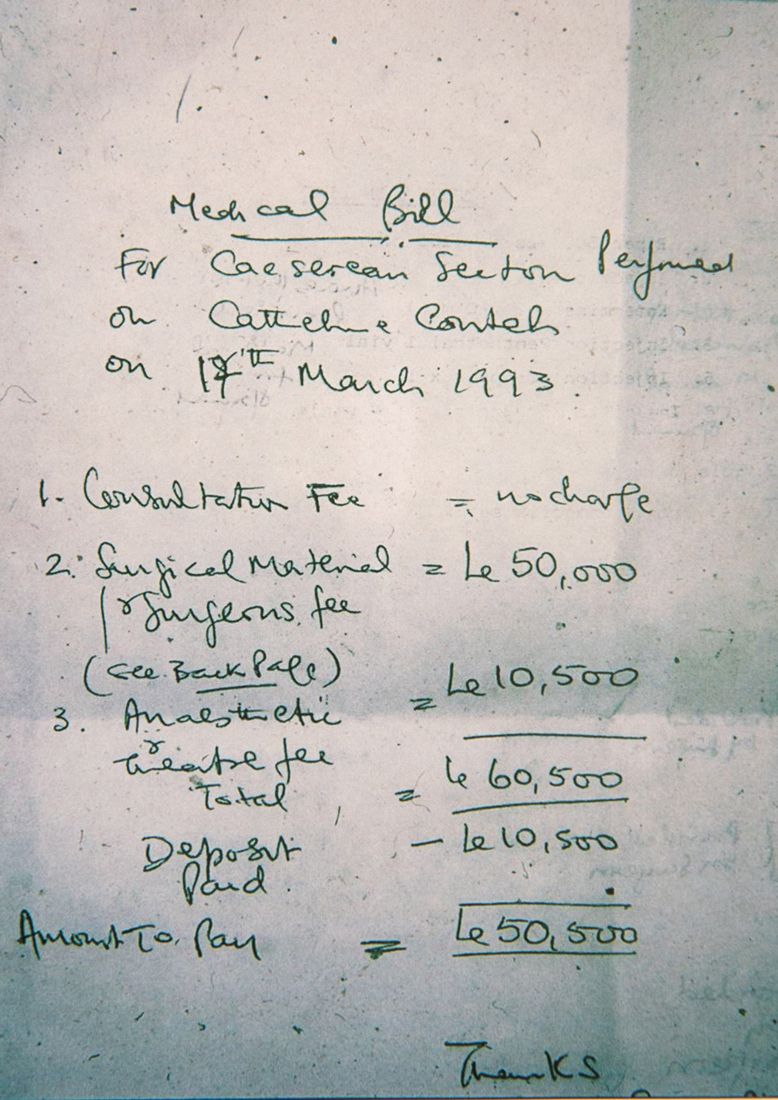 Medical Bill
For Caeserean Section Performed
on Catteline Conteh
on 17th March 1993.
1. Consultation Fee = no charge
2. Surgical Material = Le 50,000
& Surgeons fee
(see Back Page)
3. Anaesthetic = Le 10,500
& Theatre fee
Total = Le 60,500
Deposit Paid - Le 10,500
Amount To Pay = Le 50,500
Thanks